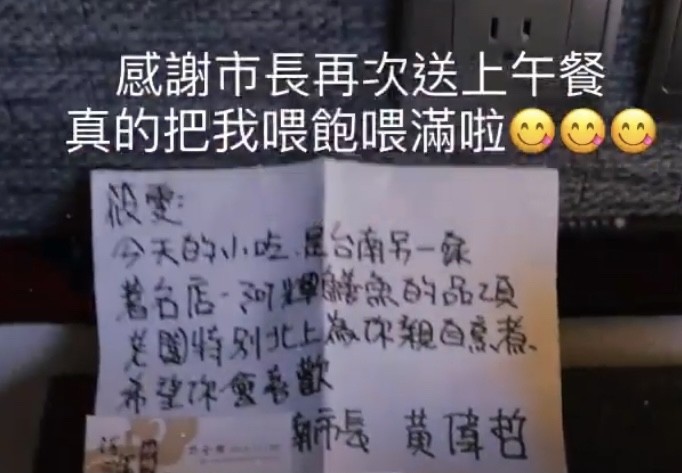 感謝市長再次送上午餐
真的把我喂飽喂滿啦😋😋😋
筱雯:
今天的小吃.是台南另一家
著名店-阿輝鱔魚的品項
老闆特別北上為你親自烹煮
希望你會喜歡
市長 黃偉哲